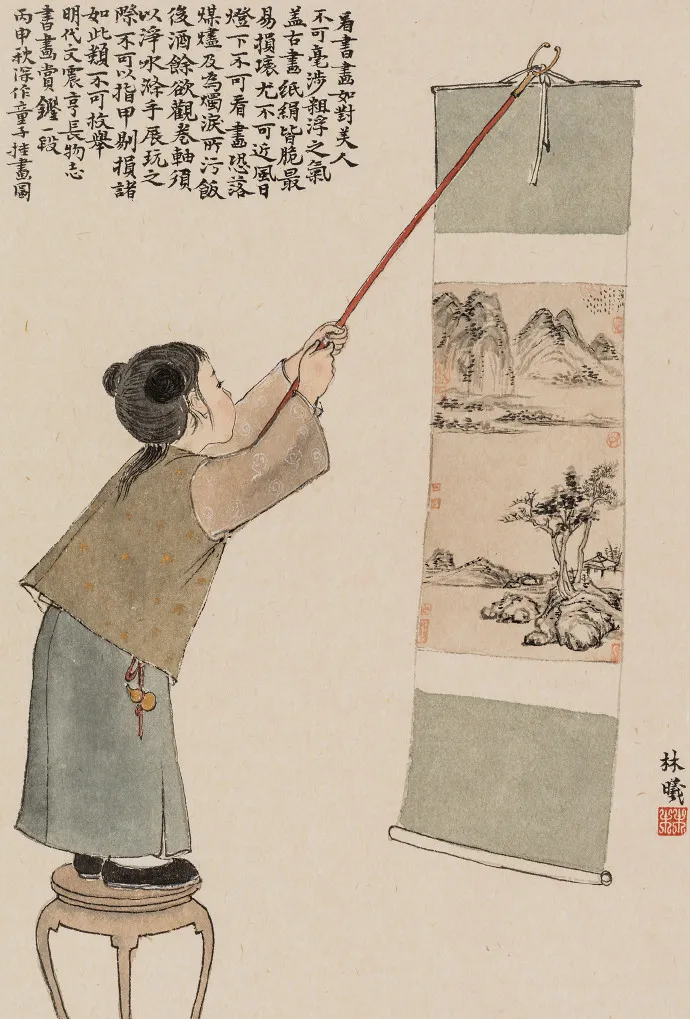 看書畫如對美人
不可毫涉粗浮之氣
盖古畫紙絹皆脆最
易損壞尤不可近風日
燈下不可看畫恐落
煤燼及為燭淚所污飯
後酒餘欲觀卷軸須
以淨水滌手展玩之
際不可以指甲剔損諸
如此類不可枚舉
明代文震亨長物志
書畫賞鑑一段
丙申秋深作童子挂畫圖
林曦